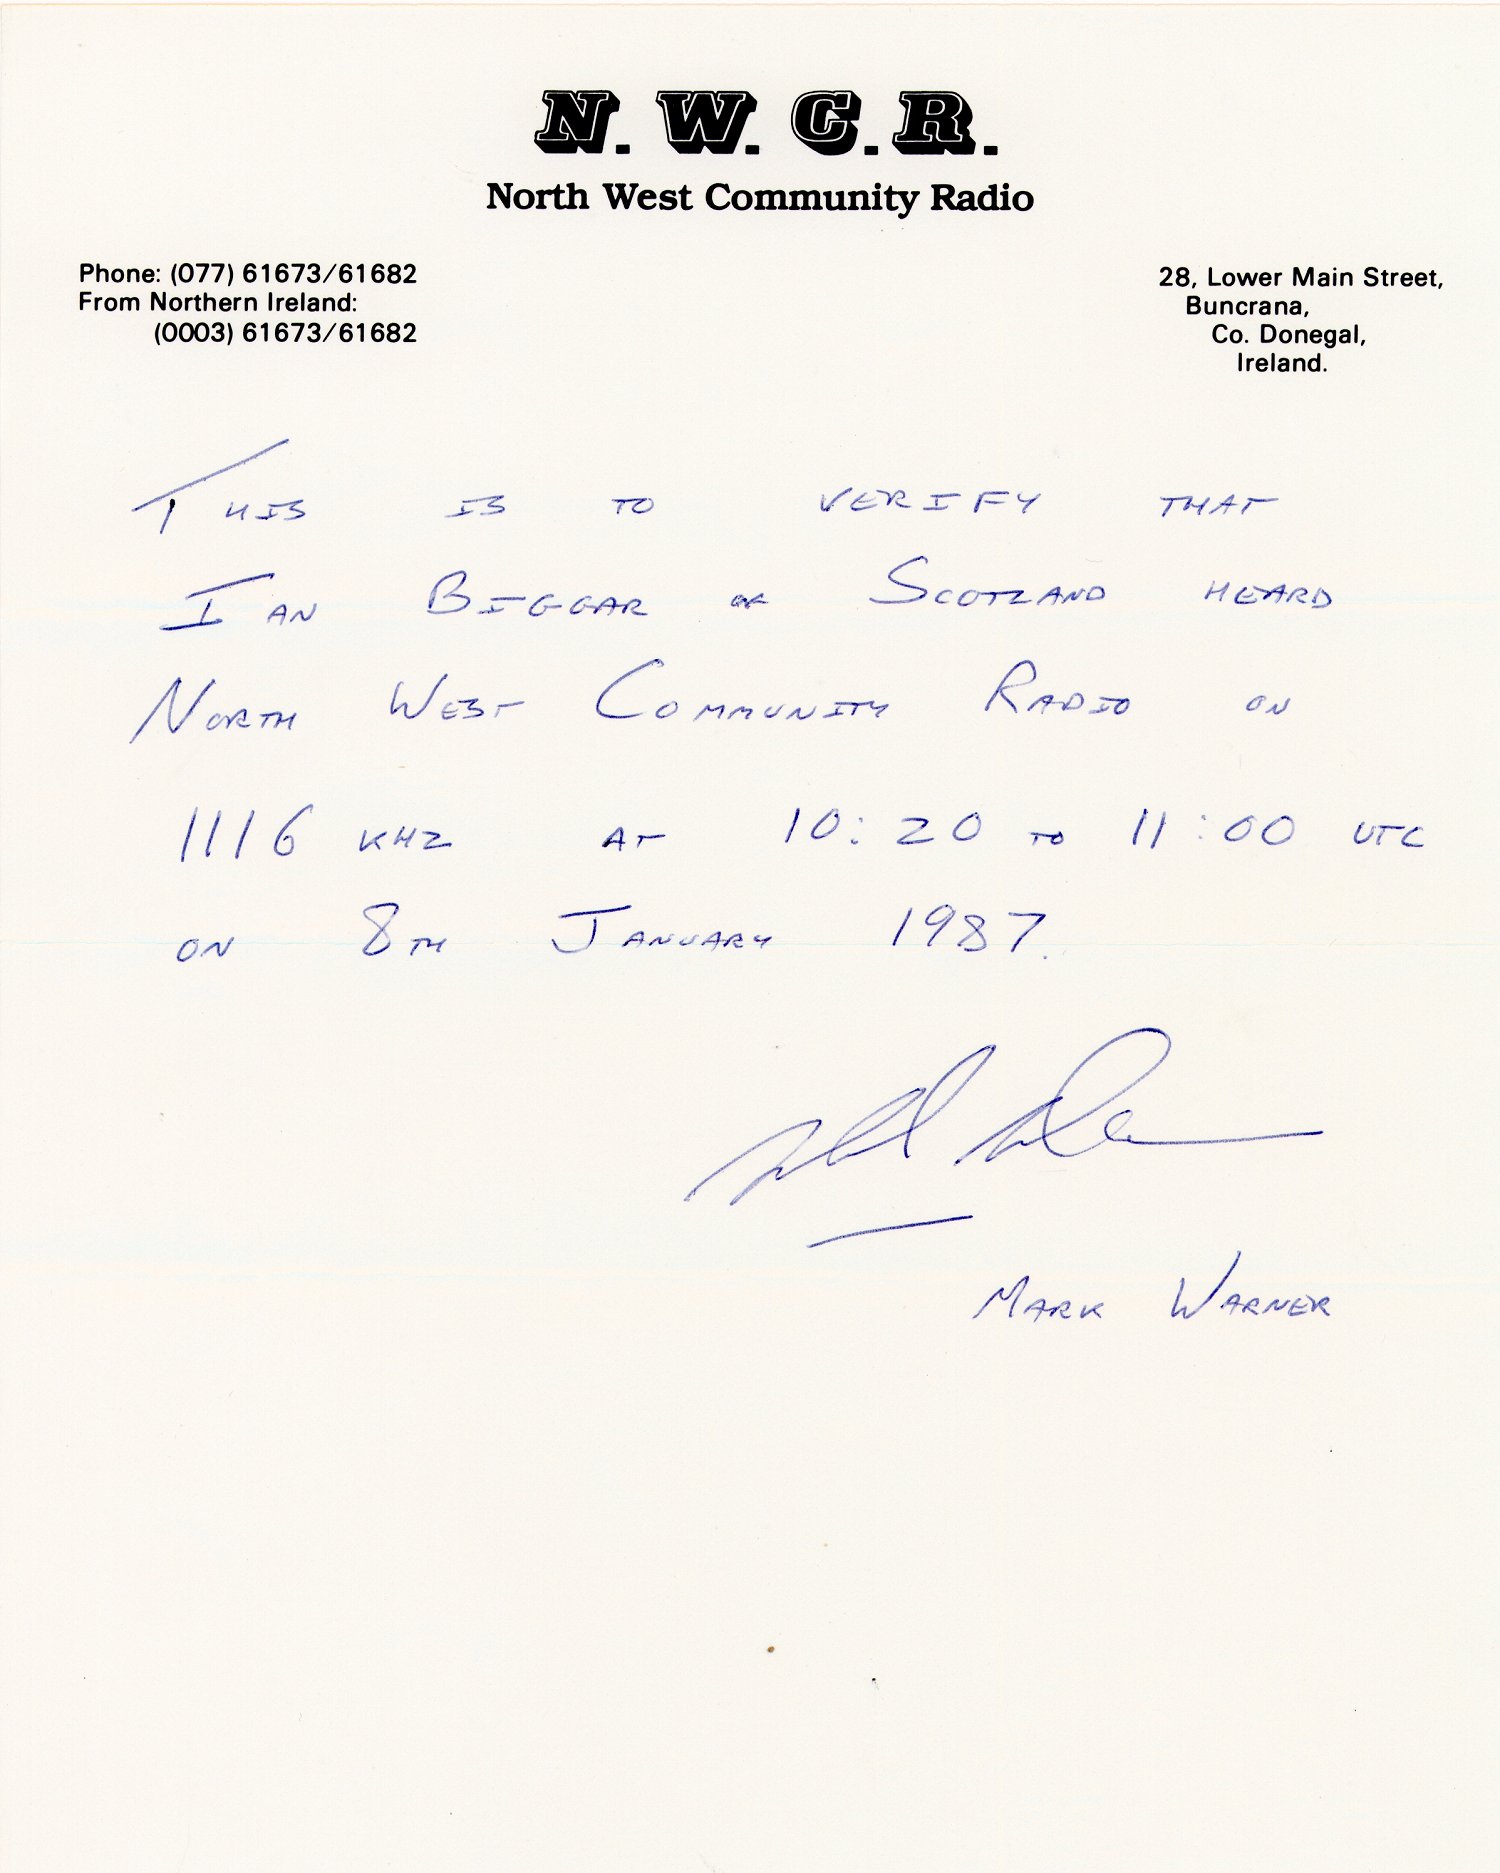 N. W. C. R.
North West Community Radio
Phone: (077) 61673/61682
From Northern Ireland:
(0003) 61673/61682
28, Lower Main Street,
Buncrana,
Co. Donegal,
Ireland.
THIS IS TO VERIFY THAT
IAN BIGGAR OF SCOTLAND HEARD
NORTH WEST COMMUNITY RADIO ON
1116 KHZ AT 10:20 TO 11:00 UTC
ON 8TH JANUARY 1987.
MARK WARNER